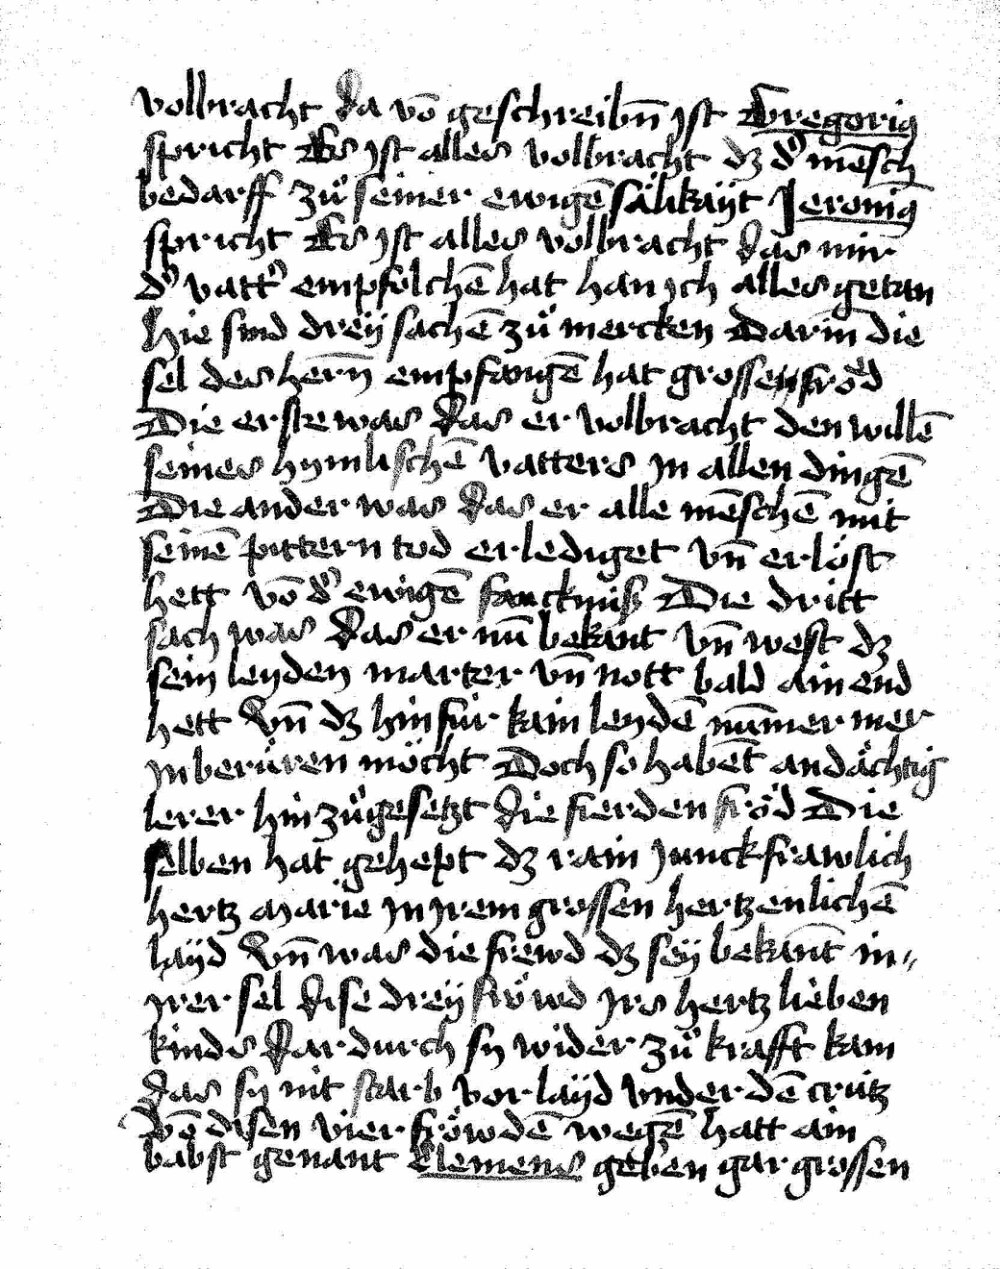 volbracht da vō geschreibn̄ ist Gregori9
spricht Es ist alles volbracht dz d' mēsch
bedarff zů seiner ewigē sälikaÿt Jeroni9
spricht Es ist alles volbracht das mir
d' vatt' empfolchē hat han ich alles getan
hie sind dreÿ sachē zů mercken Darin̄ die
sel des hern̄ empfangē hat grossen fröd
Die erste was das er volbracht den willē
seines hymlischē vatters in allen dingē
Die ander was das er alle mēschē mit
seinē pittern tod erlediget vn̄ erlöst
hett vō d' ewigē fancknüß Die dritt
sach was das er nū bekant vn̄ west dz
sein leyden marter vn̄ nott bald ain end
hett Vn̄ dz hinfür kain leydē nūmer mer
in berüren möcht Doch so habent andächtig
lerer hinzů gesetzt die fierden fröd Die
selben hat gehept dz rain junckfrawlich
hertz Marie in irem grossen hertzenlichē
laÿd Vn̄ was die frewd dz seÿ bekant in„
irer sel dise dreÿ fröwd irs hertz lieben
kinds dar durch sy wider zů krafft kam
das sy nit starb vor laÿd vnder dē crütz
Vō disen vier fröwdē wegē hatt ain
babst genant Clemens geben gar grossen